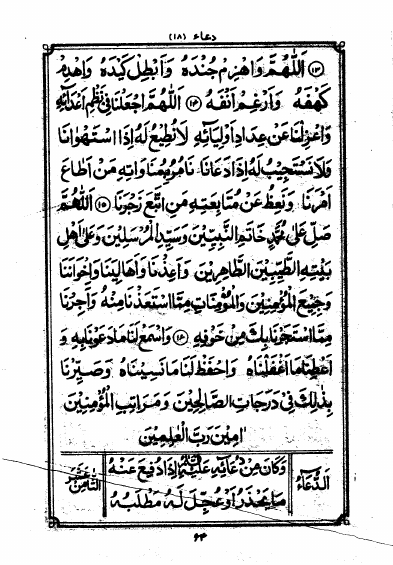 دعاء (١٨)
(١٣) اَللّٰهُمَّ وَاهْزِمْ جُنْدَهُ وَاَبْطِلْ كَيْدَهُ وَاهْدِمْ
كَهْفَهُ وَاَرْغِمْ اَنْفَهُ (١٤) اَللّٰهُمَّ اجْعَلْنَا فِيْ نَظْمِ اَعْدَآئِهِ
وَاعْزِلْنَا عَنْ عِدَادِ اَوْلِيَائِهِ لَا نُطِيْعُ لَهُ اِذَا اسْتَهْوَانَا
وَلَا نَسْتَجِيْبُ لَهُ اِذَا دَعَانَا نَأْمُرُ بِمُنَاوَاتِهِ مَنْ اَطَاعَ
اَمْرَنَا وَنَعِظُ عَنْ مُتَابَعَتِهِ مَنِ اتَّبَعَ زَجْرَنَا (١٥) اَللّٰهُمَّ
صَلِّ عَلٰى مُحَمَّدٍ خَاتَمِ النَّبِيِّيْنَ وَسَيِّدِ الْمُرْسَلِيْنَ وَعَلٰى اَهْلِ
بَيْتِهِ الطَّيِّبِيْنَ الطَّاهِرِيْنَ وَاَعِذْنَا وَاَهَالِيَنَا وَاِخْوَانَنَا
وَجَمِيْعَ الْمُؤْمِنِيْنَ وَالْمُؤْمِنَاتِ مِمَّا اسْتَعَذْنَا مِنْهُ وَاَجِرْنَا
مِمَّا اسْتَجَرْنَا بِكَ مِنْ خَوْفِهِ (١٦) وَاسْمَعْ لَنَا مَا دَعَوْنَا بِهِ وَ
اَعْطِنَا مَا اَغْفَلْنَاهُ وَاحْفَظْ لَنَا مَا نَسِيْنَاهُ وَصَيِّرْنَا
بِذٰلِكَ فِيْ دَرَجَاتِ الصَّالِحِيْنَ وَمَرَاتِبِ الْمُؤْمِنِيْنَ
اٰمِيْنَ رَبَّ الْعٰلَمِيْنَ
اَلدُّعَآءُ
وَكَانَ مِنْ دُعَائِهِ عَلَيْهِ السَّلَامُ اِذَا دُفِعَ عَنْهُ
مَا يَحْذَرُ اَوْ عُجِّلَ لَهُ مَطْلَبُهُ
الثَّامِنَ عَشَرَ
٦٤